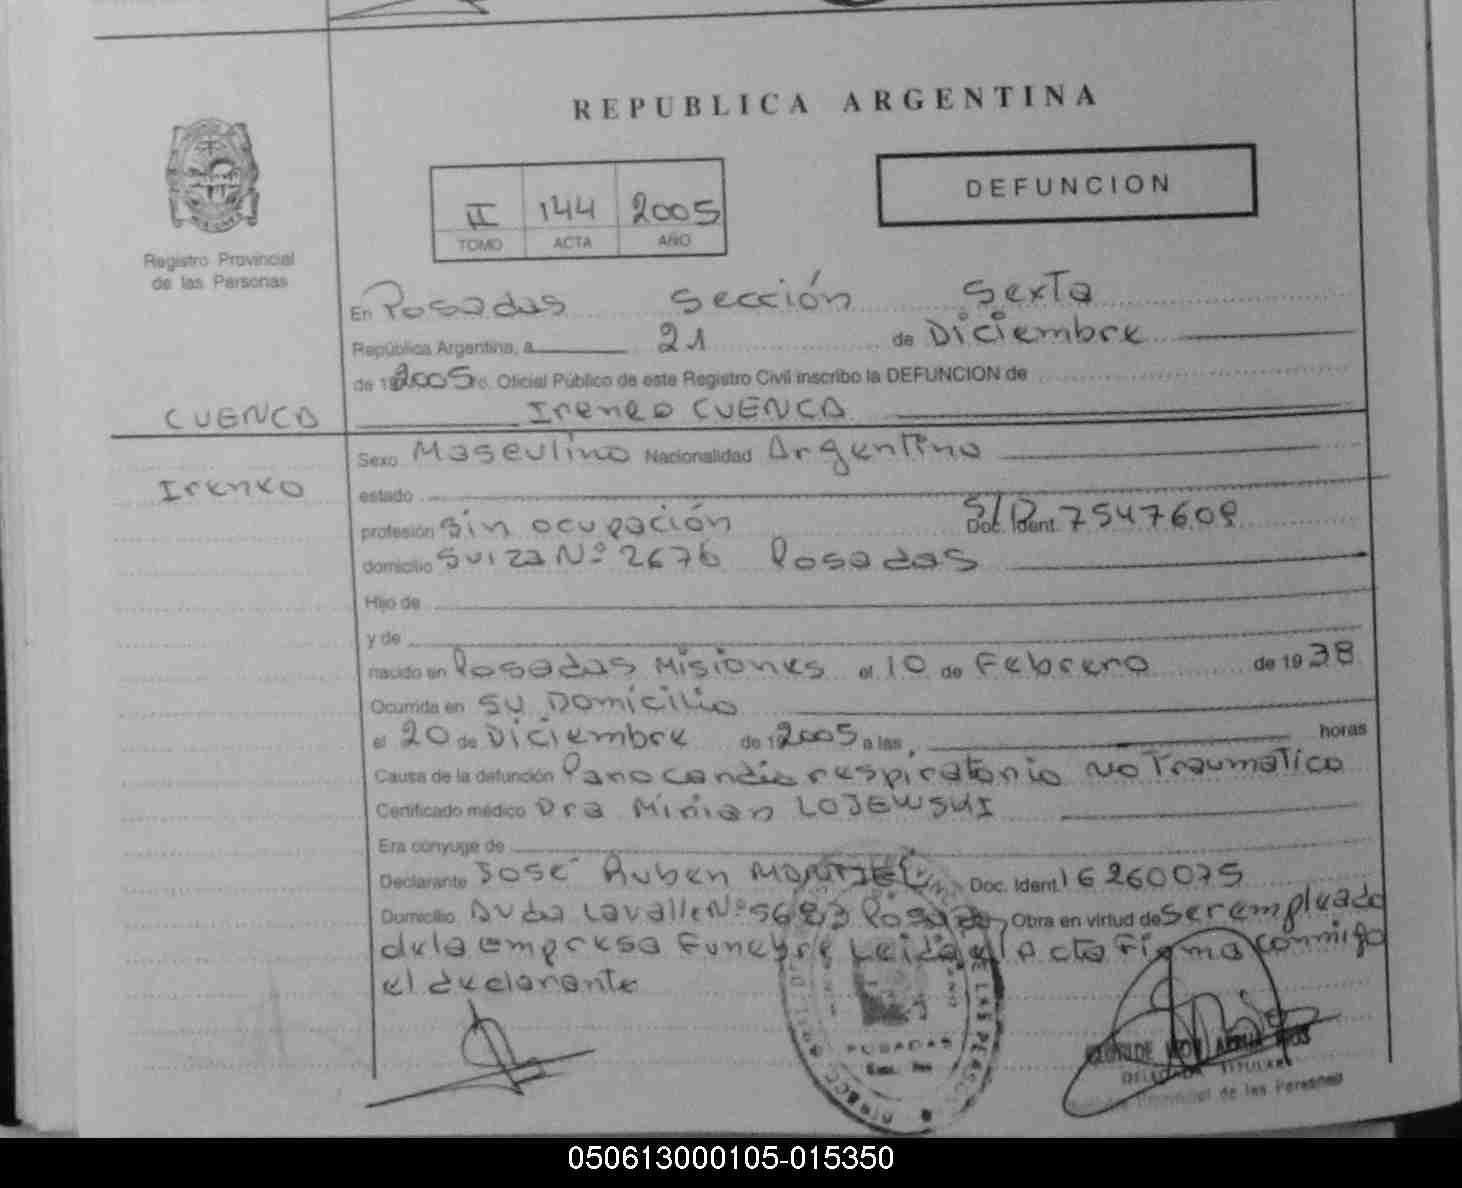 REPUBLICA ARGENTINA
DEFUNCION
II 144 2005
TOMO ACTA AÑO
Registro Provincial
de las Personas
En Posadas sección sexta
República Argentina, a 21 de Diciembre
de 2005 Oficial Público de este Registro Civil inscribo la DEFUNCION de
CUENCA Ireneo CUENCA
Sexo Masculino Nacionalidad Argentino
Ireneo estado
profesión sin ocupación Doc. Ident. 7547608
domicilio suiza Nº 2676 Posadas
Hijo de
y de
nacido en Posadas Misiones el 10 de Febrero de 1938
Ocurrida en su Domicilio
el 20 de Diciembre de 2005 a las, horas
Causa de la defunción Paro cardio respiratorio no Traumatico
Certificado médico Dra Mirian LOJEWSKI
Era cónyuge de
Declarante José Ruben MONTIEL Doc. Ident. 16260075
Domicilio Avda Lavalle Nº 5683 Posadas Obra en virtud de ser empleado
de la empresa Funebre Leida el Acta Firma conmigo
el declarante
POSADAS
TITULAR
Provincial de las Personas
050613000105-015350